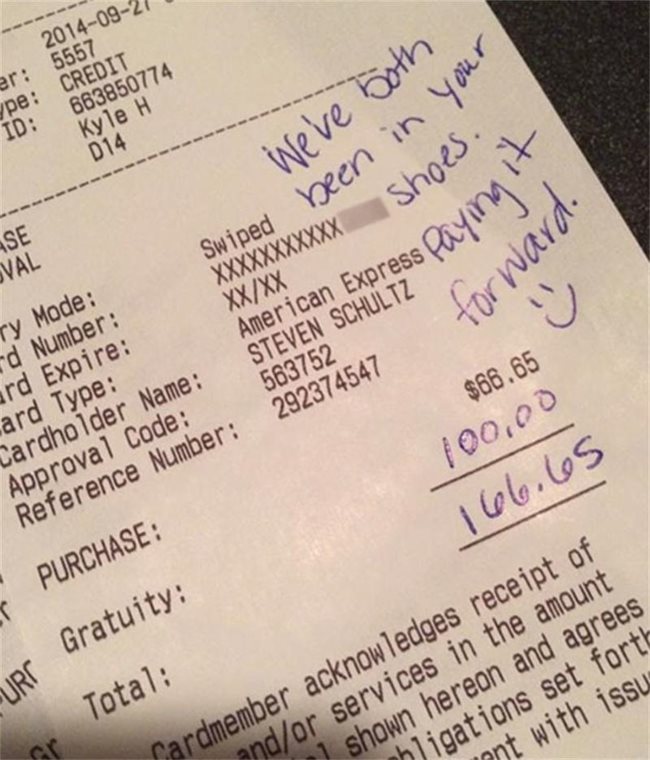 2014-09-27
er: 5557
ype: CREDIT
ID: 663850774
Kyle H
D14
We've both
been in your
shoes.
Paying it
forward.
ASE
OVAL
ry Mode: Swiped
rd Number: XXXXXXXXXXX
ard Expire: XX/XX
ard Type: American Express
Cardholder Name: STEVEN SCHULTZ
Approval Code: 563752
Reference Number: 292374547
PURCHASE: $66.65
Gratuity: 100.00
Total: 166.65
Cardmember acknowledges receipt of
and/or services in the amount
shown hereon and agrees
obligations set forth
ent with issu